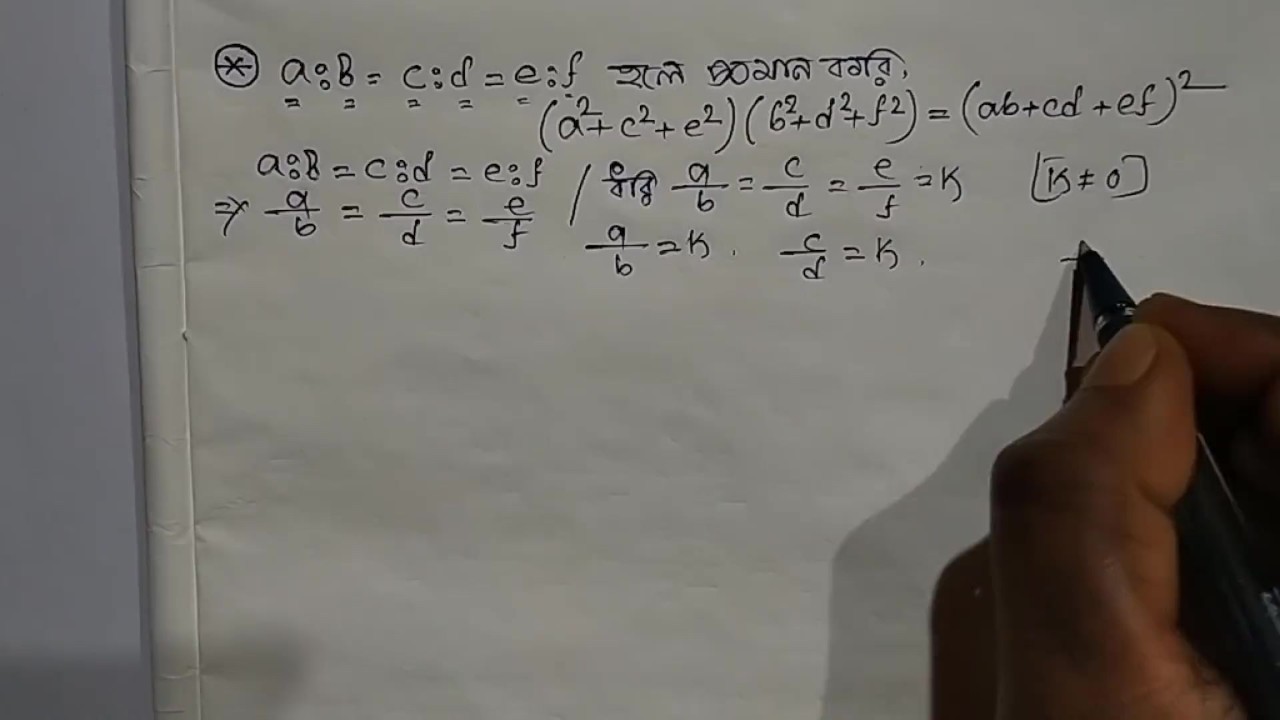 ⊛ a:B = c:d = e:f হলে প্রমাণ করি,
(a²+c²+e²)(b²+d²+f²) = (ab+cd+ef)²
a:B = c:d = e:f / ধরি a/b = c/d = e/f = K [K ≠ 0]
⇒ a/b = c/d = e/f
a/b = K. c/d = K.